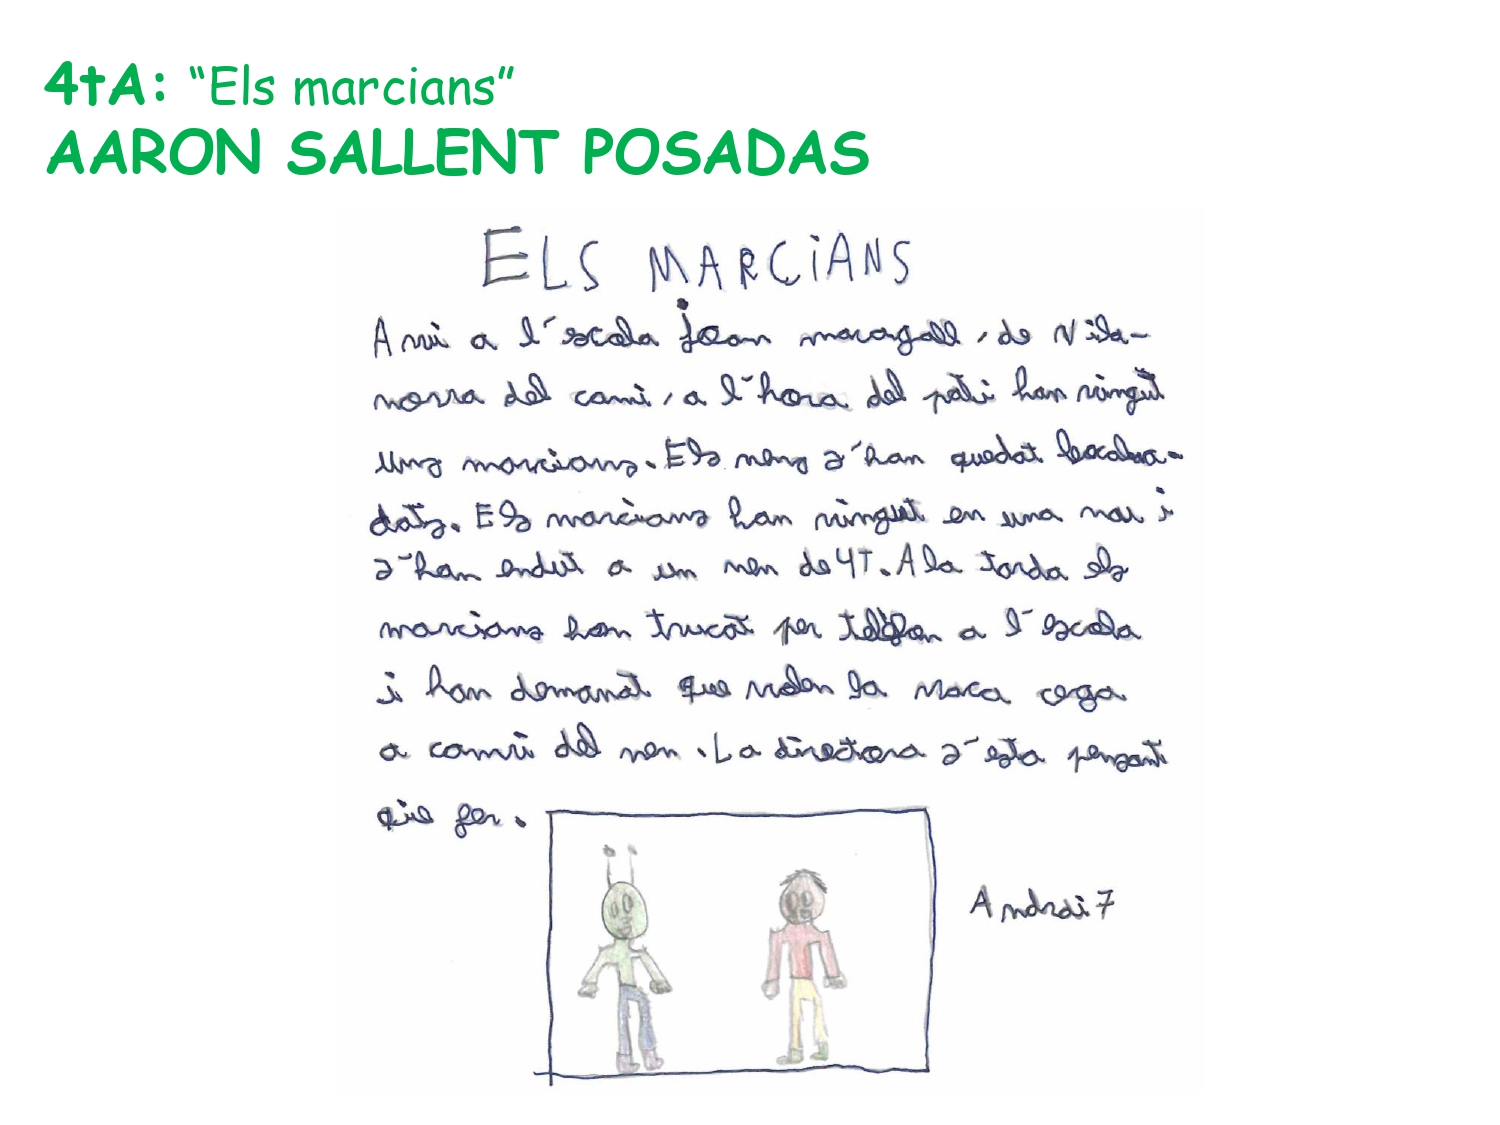 4tA: “Els marcians”
AARON SALLENT POSADAS
ELS MARCiANS
Avui a l'escola joan maragall, de Vila-
nova del cami, a l'hora del pati han vingut
uns marcians. Els nens s'han quedat bocaba-
dats. Els marcians han vingut en una nau i
s'han endut a un nen de 4T. A la tarda els
marcians han trucat per telèfon a l'escola
i han demanat que volen la vaca cega
a canvi del nen. La directora s'esta pensant
que fer.